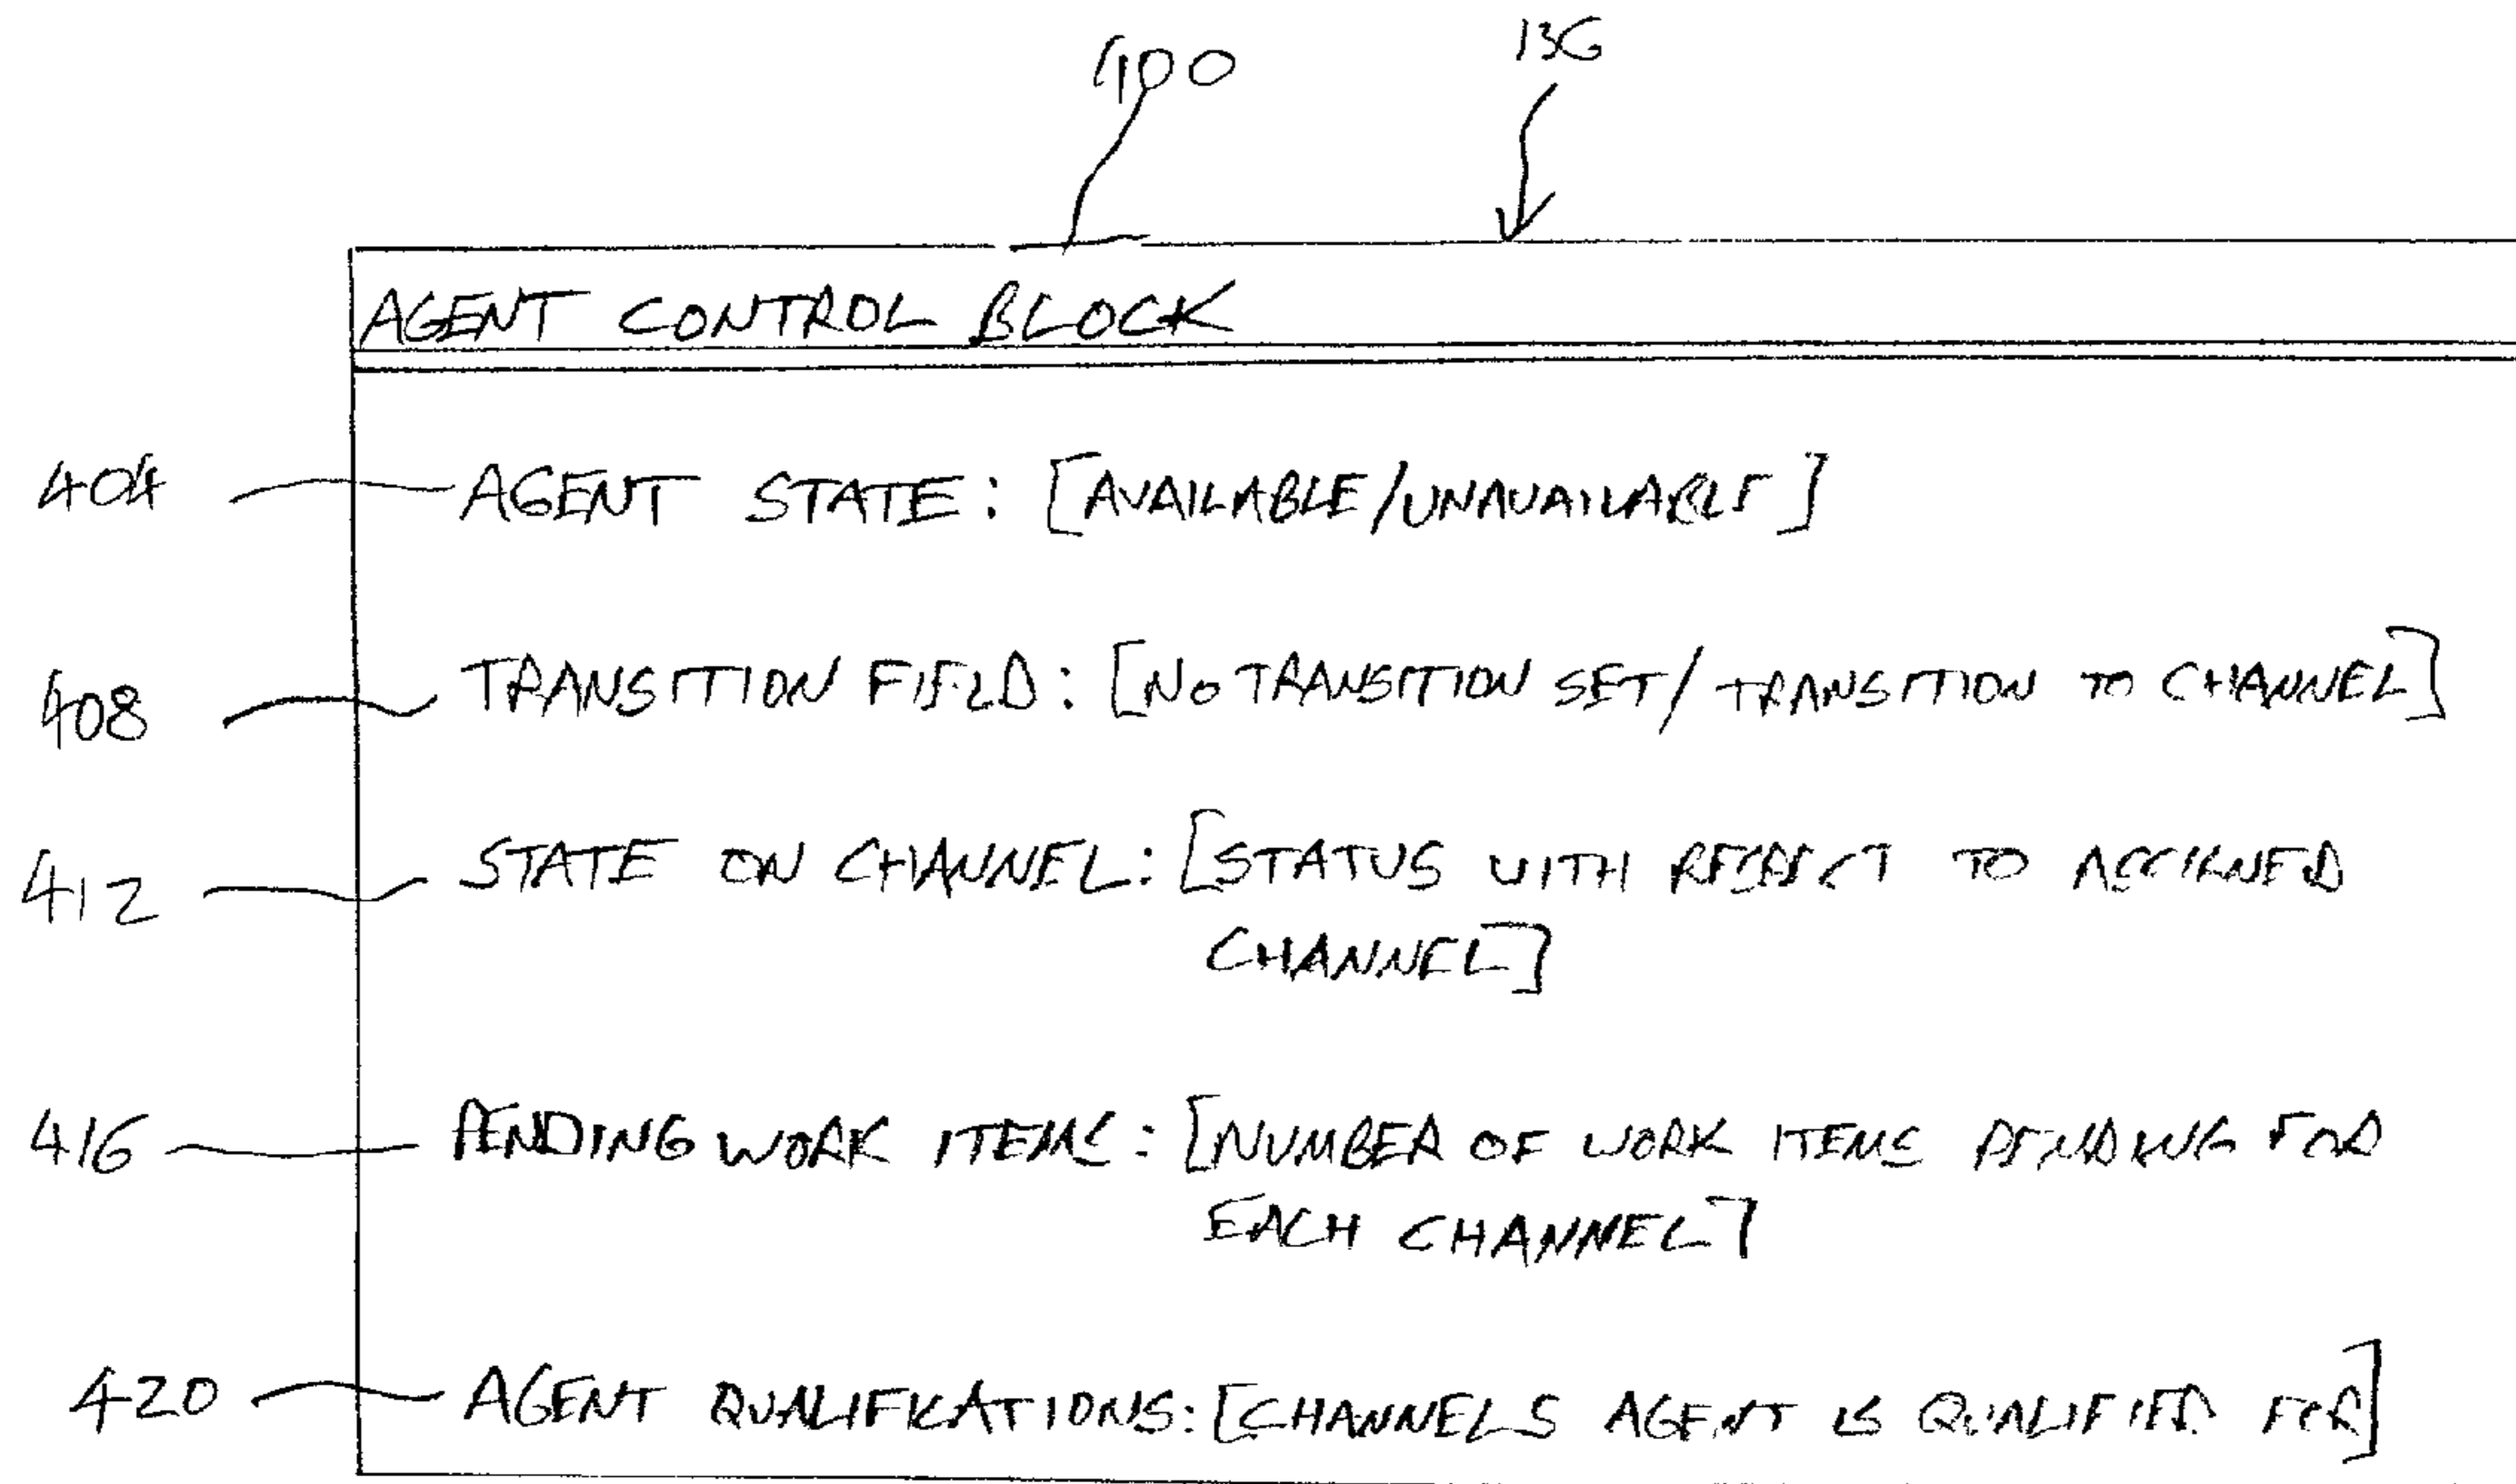 400 136
AGENT CONTROL BLOCK
404 AGENT STATE: [AVAILABLE/UNAVAILABLE]
408 TRANSITION FIELD: [NO TRANSITION SET/TRANSITION TO CHANNEL]
412 STATE ON CHANNEL: [STATUS WITH RESPECT TO ASSIGNED
CHANNEL]
416 PENDING WORK ITEMS: [NUMBER OF WORK ITEMS PENDING FOR
EACH CHANNEL]
420 AGENT QUALIFICATIONS: [CHANNELS AGENT IS QUALIFIED FOR]